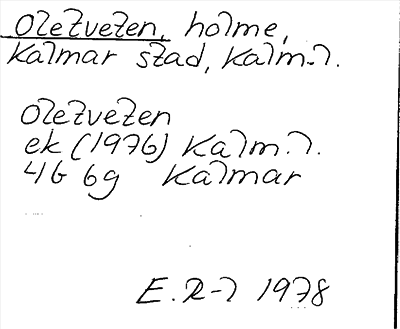 Oletveten, holme,
Kalmar stad, Kalm.l.
Oletveten
ek (1976) Kalm.l.
4G 6g Kalmar
E.R-l 1978